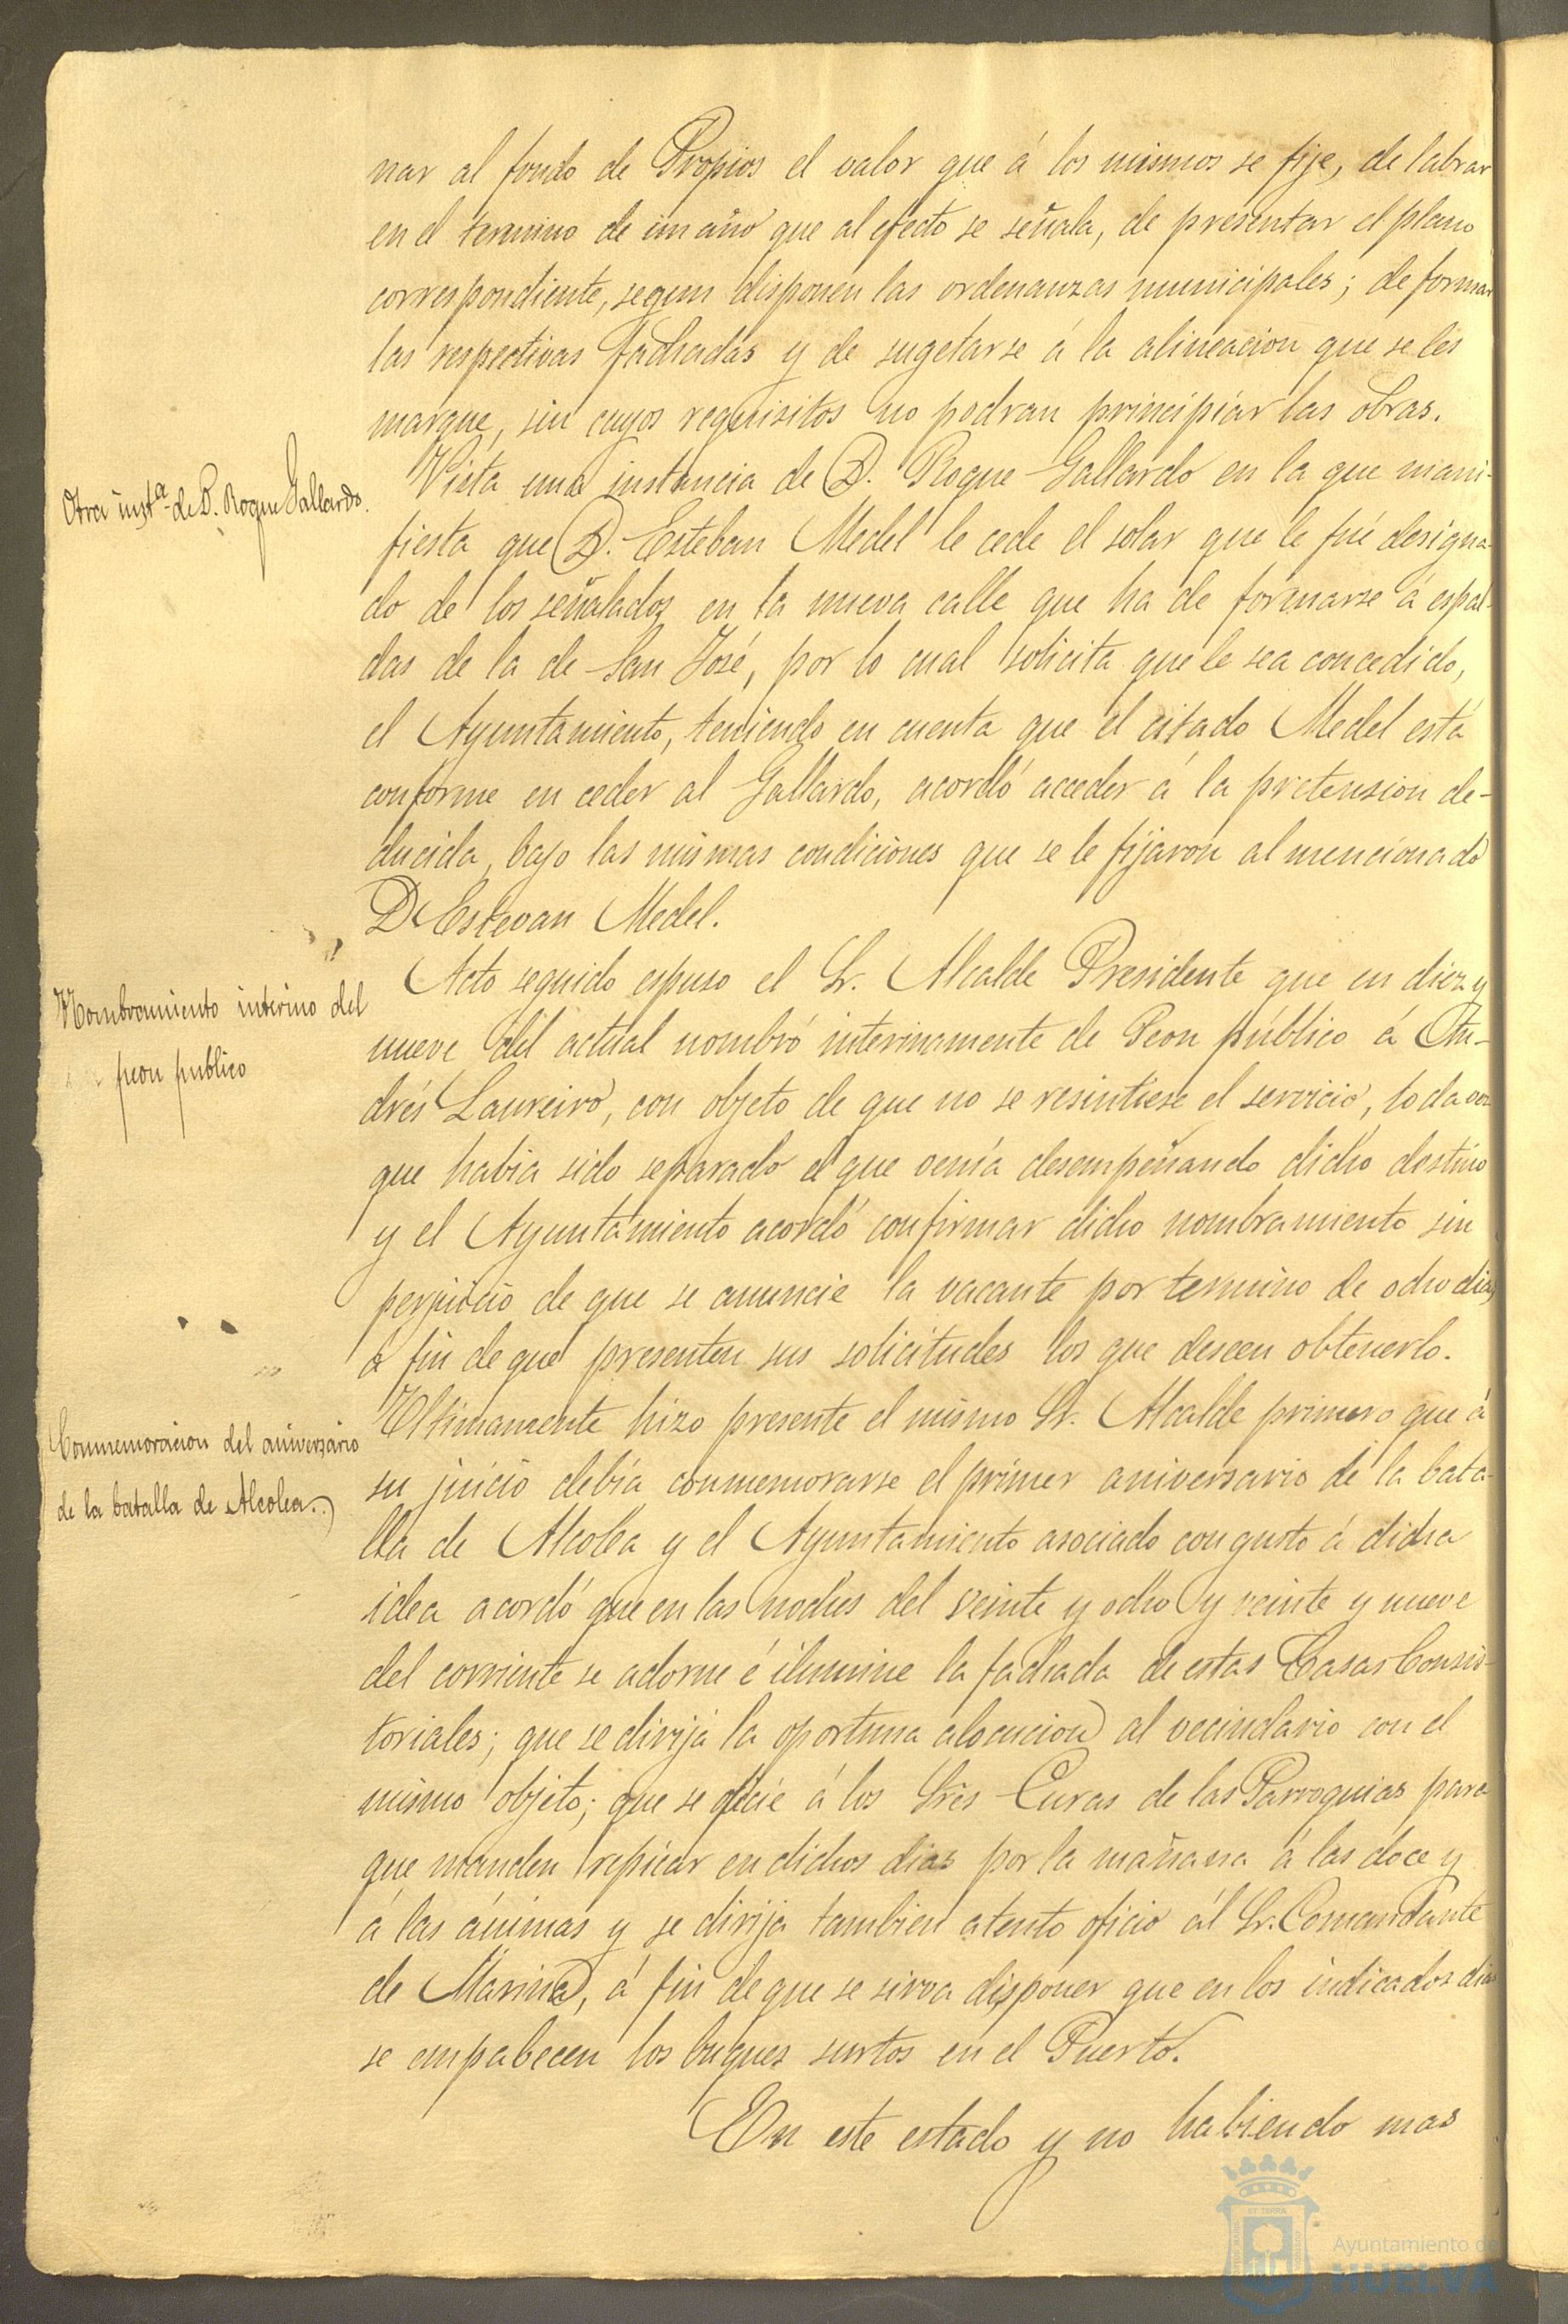 nar al fondo de Propios el valor que á los mismos se fije, de labrar
en el termino de un año que al efecto se señala, de presentar el plano
correspondiente, segun disponen las ordenanzas municipales; de formar
las respectivas fachadas y de sugetarse á la alineacion que se les
marque, sin cuyos requisitos no podran principiar las obras.
Otra inst.ª de D. Roque Gallardo.
Vista una instancia de D. Roque Gallardo en la que mani-
fiesta que D. Esteban Medel le cede el solar que le fué designa-
do de los señalados en la nueva calle que ha de formarse á espal-
das de la de San José, por lo cual solicita que le sea concedido,
el Ayuntamiento, teniendo en cuenta que el citado Medel está
conforme en ceder al Gallardo, acordó acceder á la pretension de-
ducida, bajo las mismas condiciones que se le fijaron al mencionado
D Estevan Medel.
Nombramiento interino del
peon publico
Acto seguido espuso el Sr. Alcalde Presidente que en diez y
nueve del actual nombró interinamente de Peon público á An-
drés Laureiro, con objeto de que no se resintiese el servicio, toda vez
que habia sido separado el que venía desempeñando dicho destino
y el Ayuntamiento acordó confirmar dicho nombramiento sin
perjuicio de que se anuncie la vacante por termino de ocho dias,
á fin de que presenten sus solicitudes los que deseen obtenerlo.
Conmemoracion del aniversario
de la batalla de Alcolea.
Ultimamente hizo presente el mismo Sr. Alcalde primero que á
su juicio debía conmemorarse el primer aniversario de la bata-
lla de Alcolea y el Ayuntamiento asociado con gusto á dicha
idea acordó que en las noches del veinte y ocho y veinte y nueve
del corriente se adorne é ilumine la fachada de estas Casas Consis-
toriales; que se dirija la oportuna alocucion al vecindario con el
mismo objeto; que se oficie á los Sres Curas de las Parroquias para
que manden repicar en dichos dias por la mañana á las doce y
á las ánimas y se dirija tambien atento oficio al Sr. Comandante
de Marina, á fin de que se sirva disponer que en los indicados dias
se empabecen los buques surtos en el Puerto.
En este estado y no habiendo mas
Ayuntamiento de
HUELVA